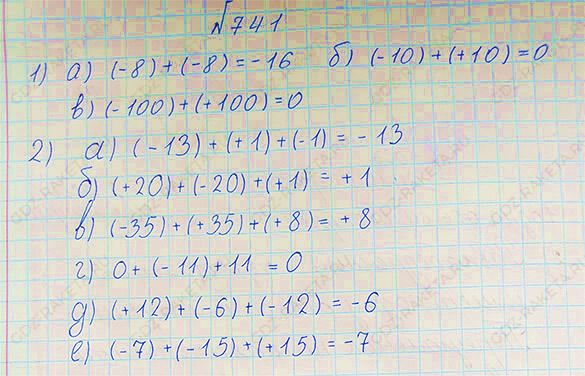 №741
1) а) (-8)+(-8)=-16 б) (-10)+(+10)=0
в) (-100)+(+100)=0
2) а) (-13)+(+1)+(-1)=-13
б) (+20)+(-20)+(+1)=+1
в) (-35)+(+35)+(+8)=+8
г) 0+(-11)+11=0
д) (+12)+(-6)+(-12)=-6
е) (-7)+(-15)+(+15)=-7